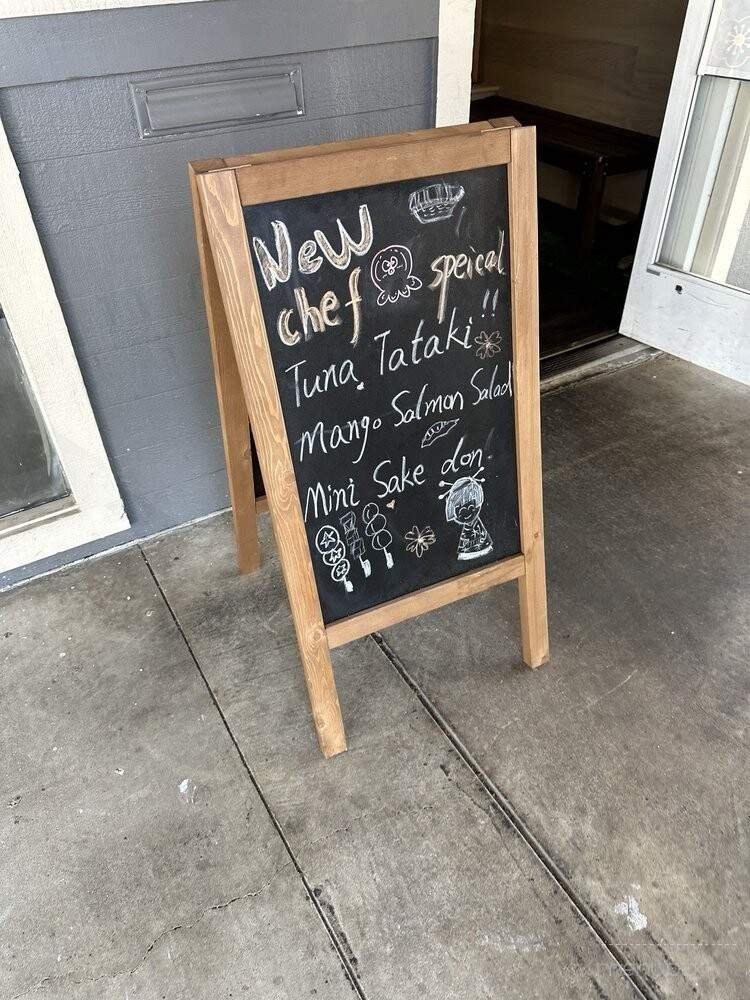 New
chef speical !!
Tuna Tataki
Mango Salmon Salad
Mini Sake don